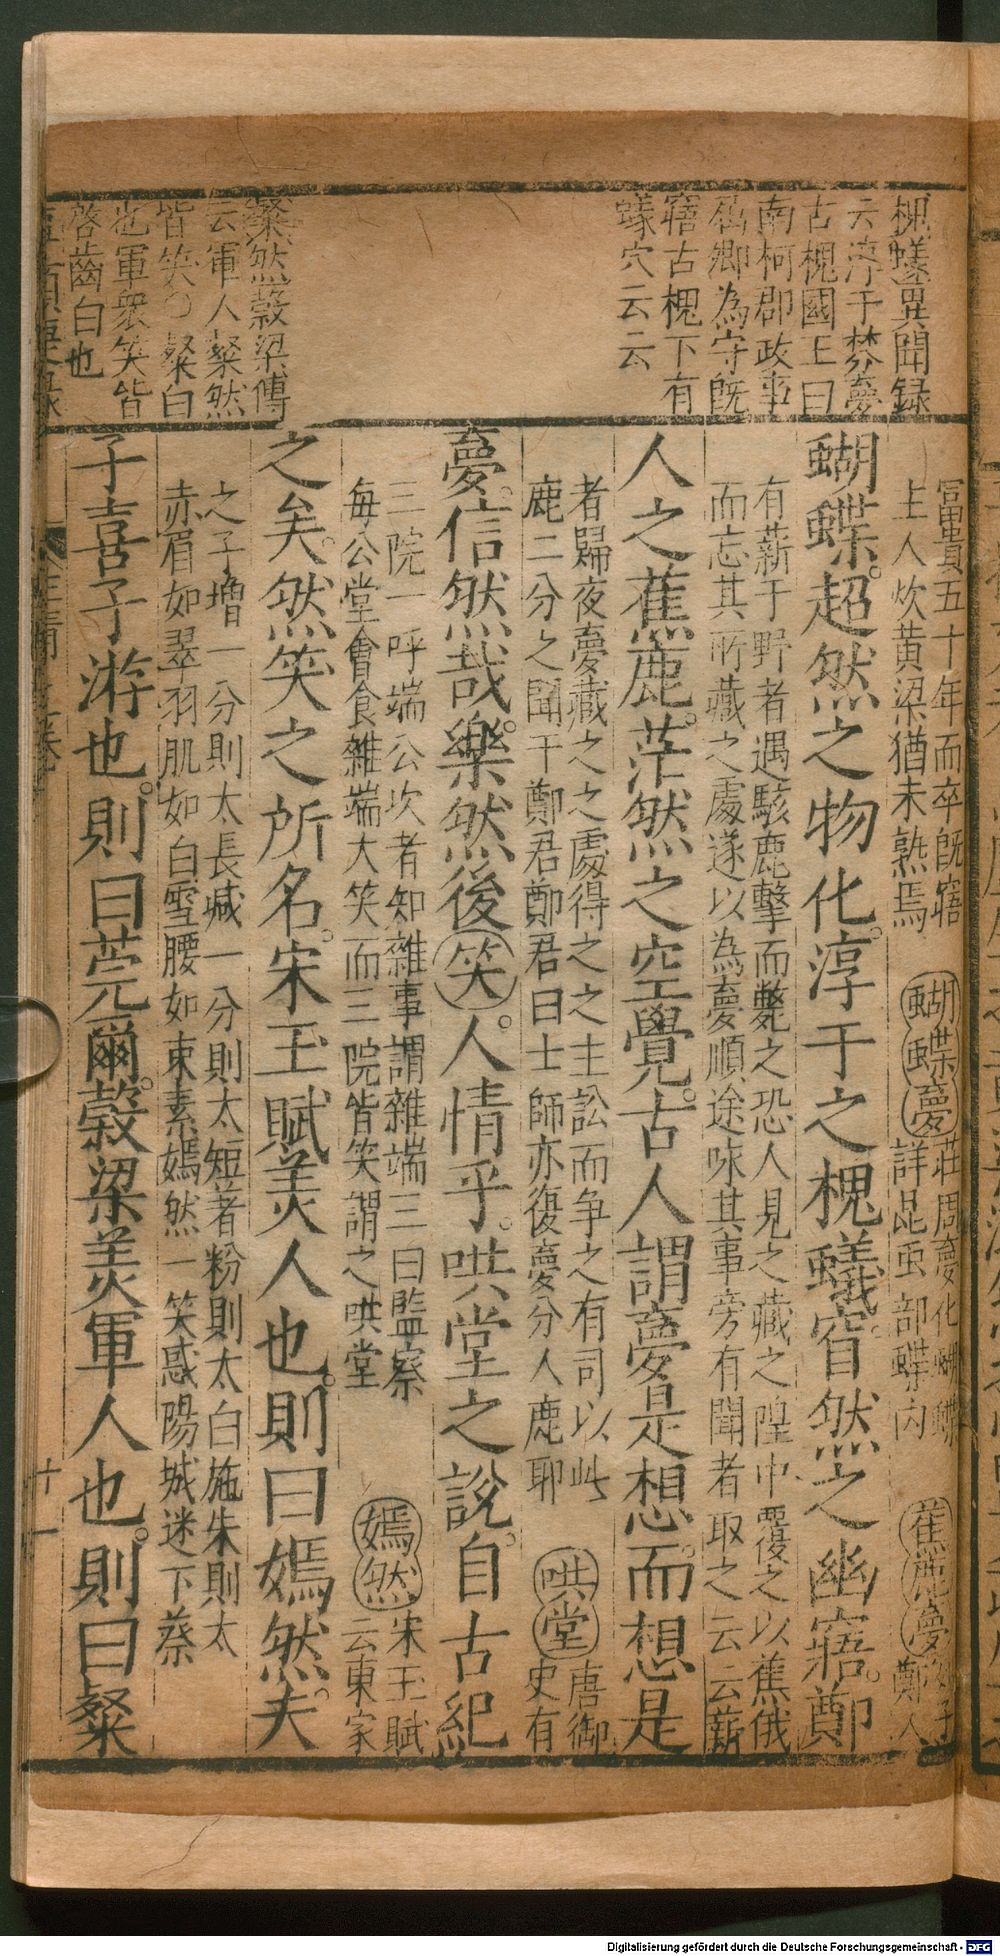 槐蟻異聞録
云淳于棼夢
古槐國王曰
南柯郡政事
屈卿為守旣
寤古槐下有
蟻穴云云
粲然糓梁傳
云軍人粲然
皆笑〇粲白
也軍衆笑皆
啓齒白也
富貴五十年而卒旣寤
主人炊黄梁猶未熟焉
蝴蝶夢
莊周夢化蝴蝶
詳昆虫部蝶内
蕉鹿夢
鄭人
蝴蝶。超然之物化。淳于之槐蟻。窅然之幽寤。鄭
有薪于野者遇駭鹿擊而斃之恐人見之藏之隍中覆之以蕉俄
而忘其所藏之處遂以為夢順途咏其事旁有聞者取之云云薪
人之蕉鹿。茫然之空覺。古人謂夢是想。而想是
者歸夜夢藏之之處得之之主訟而争之有司以此
鹿二分之聞于鄭君鄭君曰士師亦復夢分人鹿耶
哄堂
唐御
史有
夢。信然哉。樂然後笑。人情乎。哄堂之說。自古紀
三院一呼端公次者知雜事謂雜端三曰監察
每公堂會食雜端大笑而三院皆笑謂之哄堂
嫣然
宋玉賦
云東家
之矣。然笑之所名。宋玉賦美人也。則曰嫣然。夫
之子增一分則太長减一分則太短著粉則太白施朱則太
赤眉如翠羽肌如白雪腰如束素嫣然一笑惑陽城迷下蔡
子喜子游也。則曰莞爾。糓梁美軍人也。則曰粲
十一
Digitalisierung gefördert durch die Deutsche Forschungsgemeinschaft - DFG